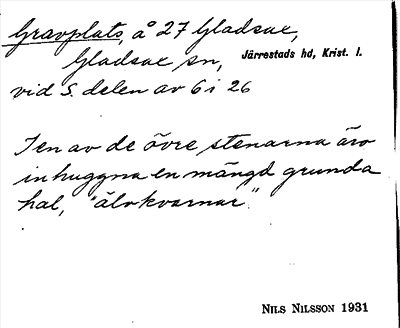 Gravplats, å 27 Gladsax,
Gladsax sn, Järrestads hd, Krist. l.
vid S. delen av 6 i 26
I en av de övre stenarna äro
inhuggna en mängd grunda
hål, "älvkvarnar".
NILS NILSSON 1931